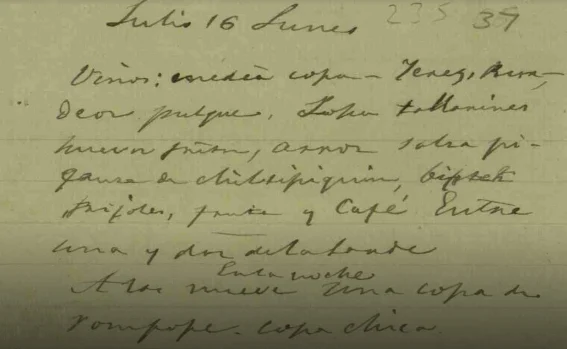 Julio 16 Lunes 235 39
Vinos: media copa - Jerez, Riva-
deor pulque. Sopa tallarines
huevos fritos, arroz salsa pi-
cante de chilsipiquin, bifstek
frijoles, fruta y Café Entre
una y dos de la tarde
En la noche
A las nueve una copa de
rompope. copa chica.